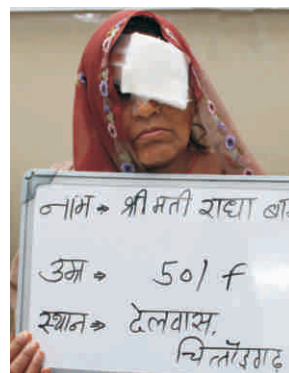 नाम → श्रीमती राधा
उम्र → 50/F
स्थान → देलवास,
चित्तौड़गढ़